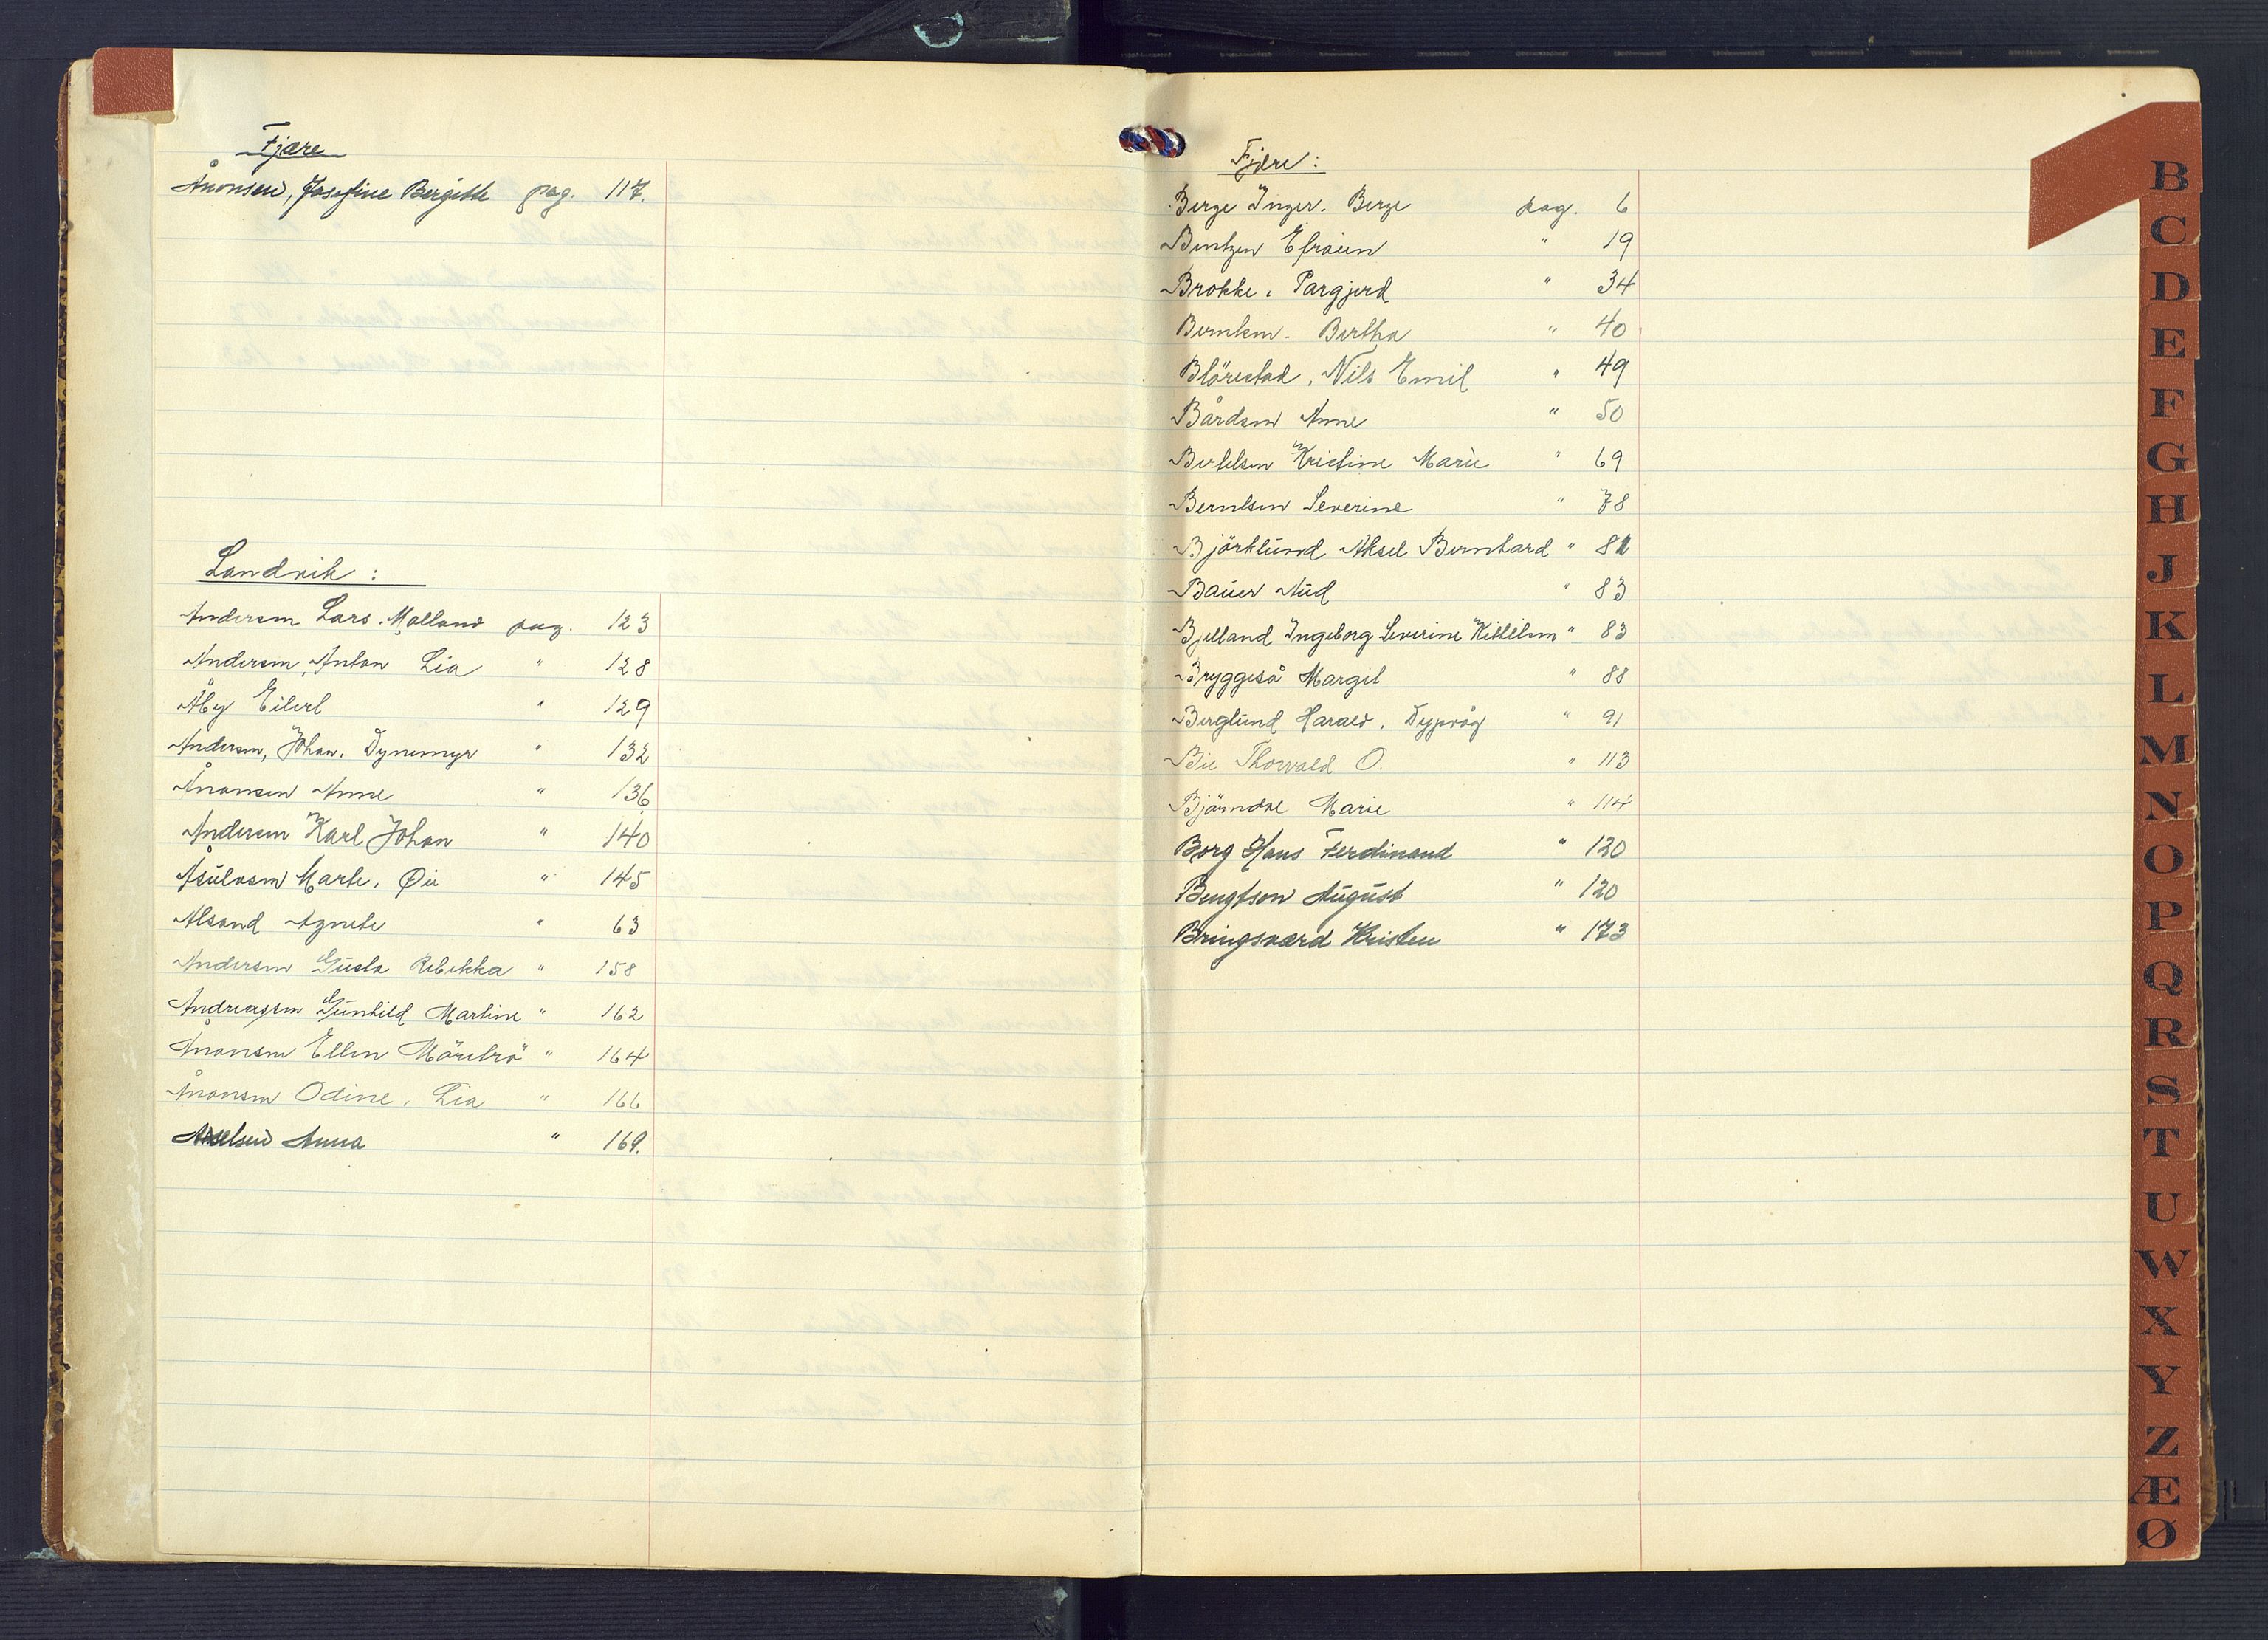 Fjære
Ånonsen, Josefine Bergitte pag. 117.
Landvik:
Andersen Lars. Molland pag. 123
Andersen, Anton Lia " 128
Åby Eilert " 129
Andersen, Johan. Dynemyr " 132
Ånonsen Anne " 136
Andersen Karl Johan " 140
Åsulvsen Marte. Øie " 145
Alsand Agnete " 63
Andersen Gusta Rebekka " 158
Andreassen Gunhild Martine " 162
Ånonsen Ellen Möretrö " 164
Ånonsen Odine. Lia " 166
Axelsen Anna " 169.
Fjære:
Berge Inger. Berge pag. 6
Bentzen Efraim " 19
Brokke. Pargjerd " 34
Berntsen. Bertha " 40
Blörestad, Nils Emil " 49
Bårdsen Anne " 50
Bertelsen Kristine Marie " 69
Berntsen Severine " 78
Björklund Aksel Bernhard " 81
Bauer Aud " 83
Bjelland Ingeborg Severine Kittilsen " 83
Bryggeså Margit " 88
Berglund Harald. Dypvåg " 91
Bie Thorvald O. " 113
Björndal Marie " 114
Borg Hans Ferdinand " 120
Bengtson August " 120
Bringsværd Kristen " 173
B
C
D
E
F
G
H
J
K
L
M
N
O
P
Q
R
S
T
U
W
X
Y
Z
Æ
Ø